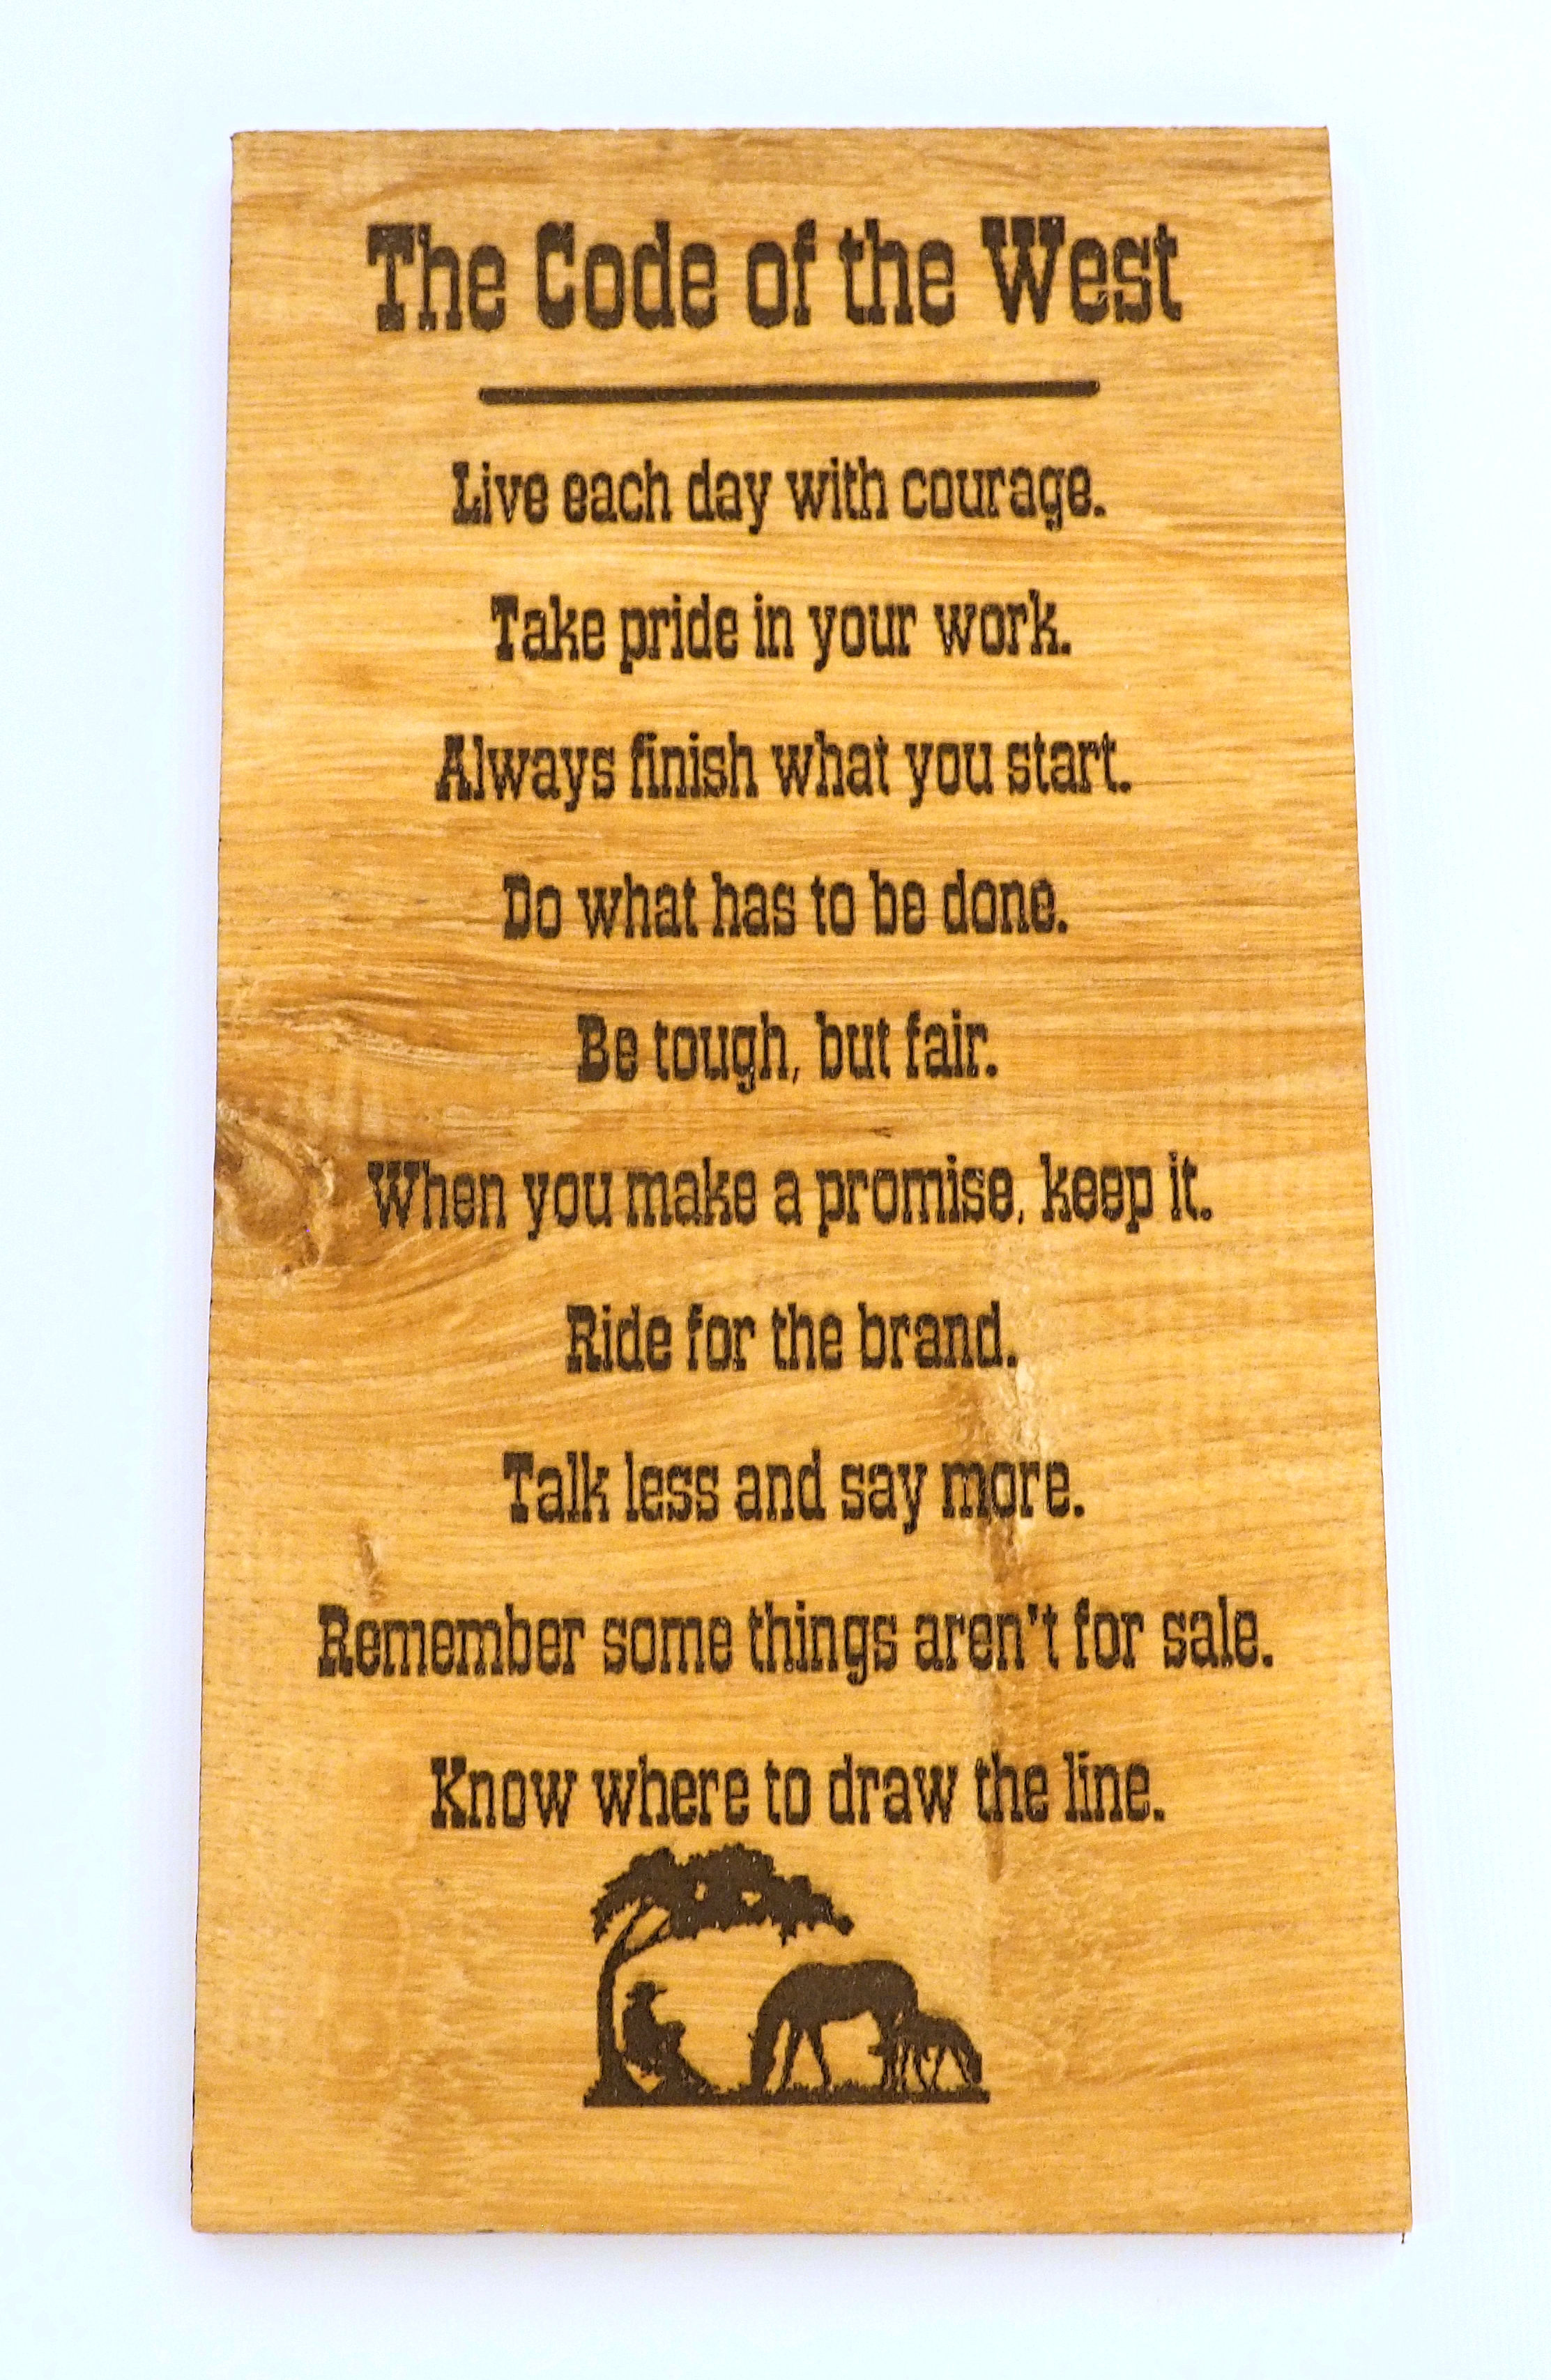 The Code of the West
Live each day with courage.
Take pride in your work.
Always finish what you start.
Do what has to be done.
Be tough, but fair.
When you make a promise, keep it.
Ride for the brand.
Talk less and say more.
Remember some things aren't for sale.
Know where to draw the line.